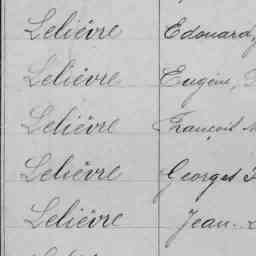 Lelièvre Edouard,
Lelièvre Eugène,
Lelièvre François
Lelièvre Georges
Lelièvre Jean